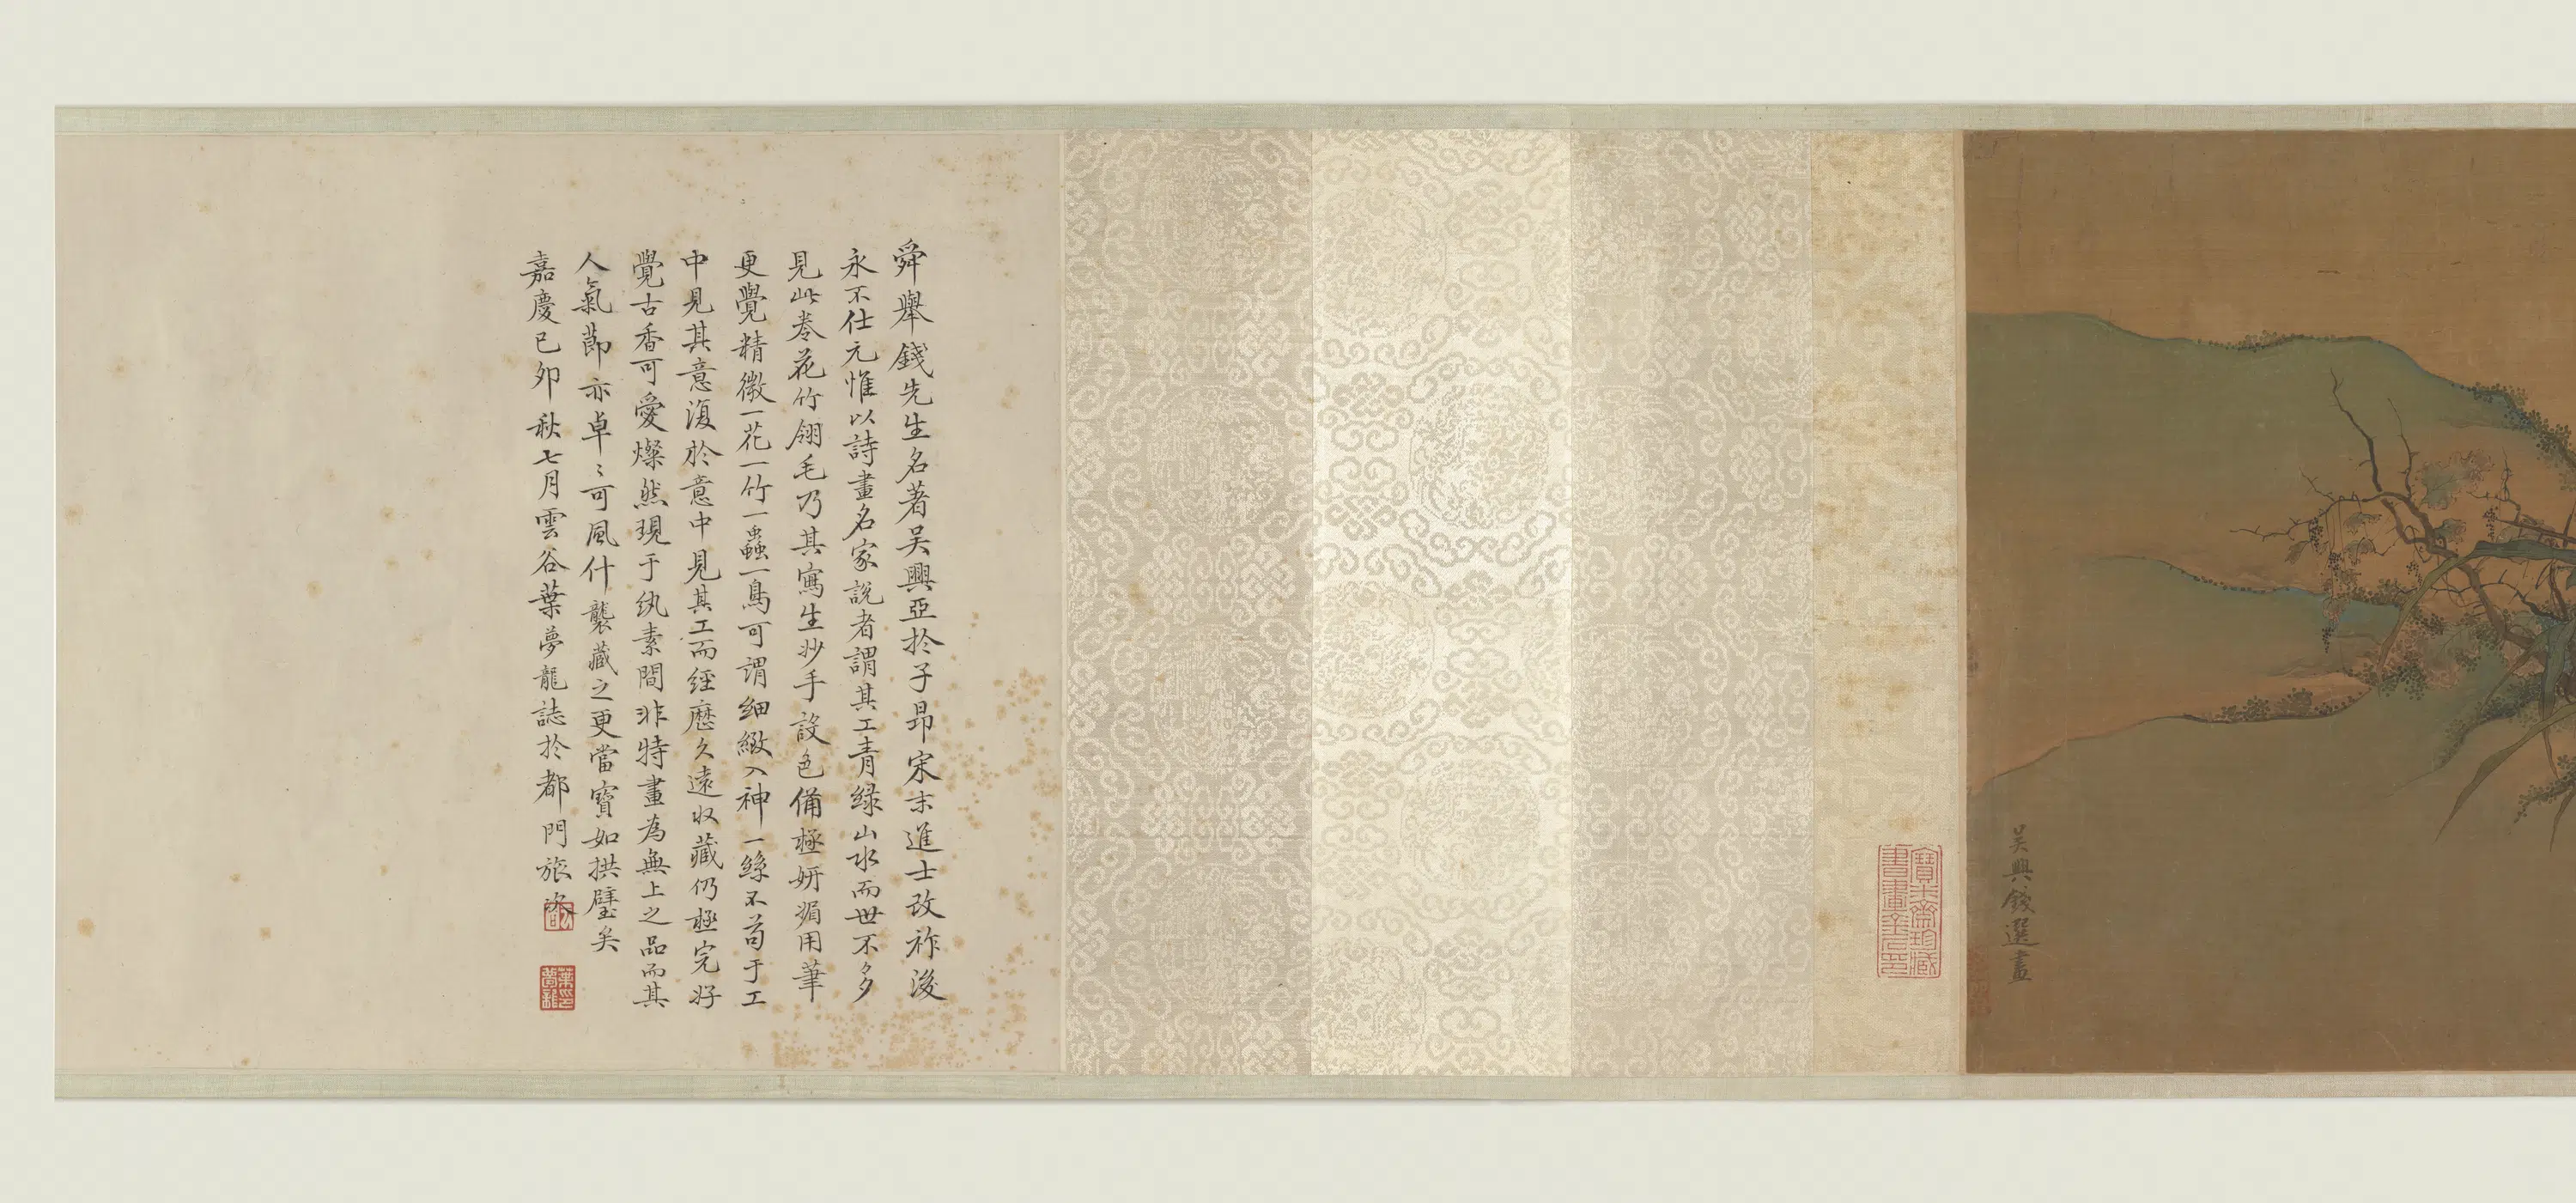 吳興錢選畫
舜舉錢先生名著吳興亞於子昂宋末進士改祚後
永不仕元惟以詩畫名家說者謂其工青綠山水而世不多
見此卷花竹翎毛乃其寫生妙手設色備極妍媚用筆
更覺精微一花一竹一蟲一鳥可謂細緻入神一絲不苟于工
中見其意復於意中見其工而經歷久遠收藏仍極完好
覺古香可愛燦然現于紈素間非特畫為無上之品而其
人氣節亦卓〻可風什襲藏之更當寶如拱璧矣
嘉慶己卯秋七月雲谷葉夢龍誌於都門旅次
葉印夢龍